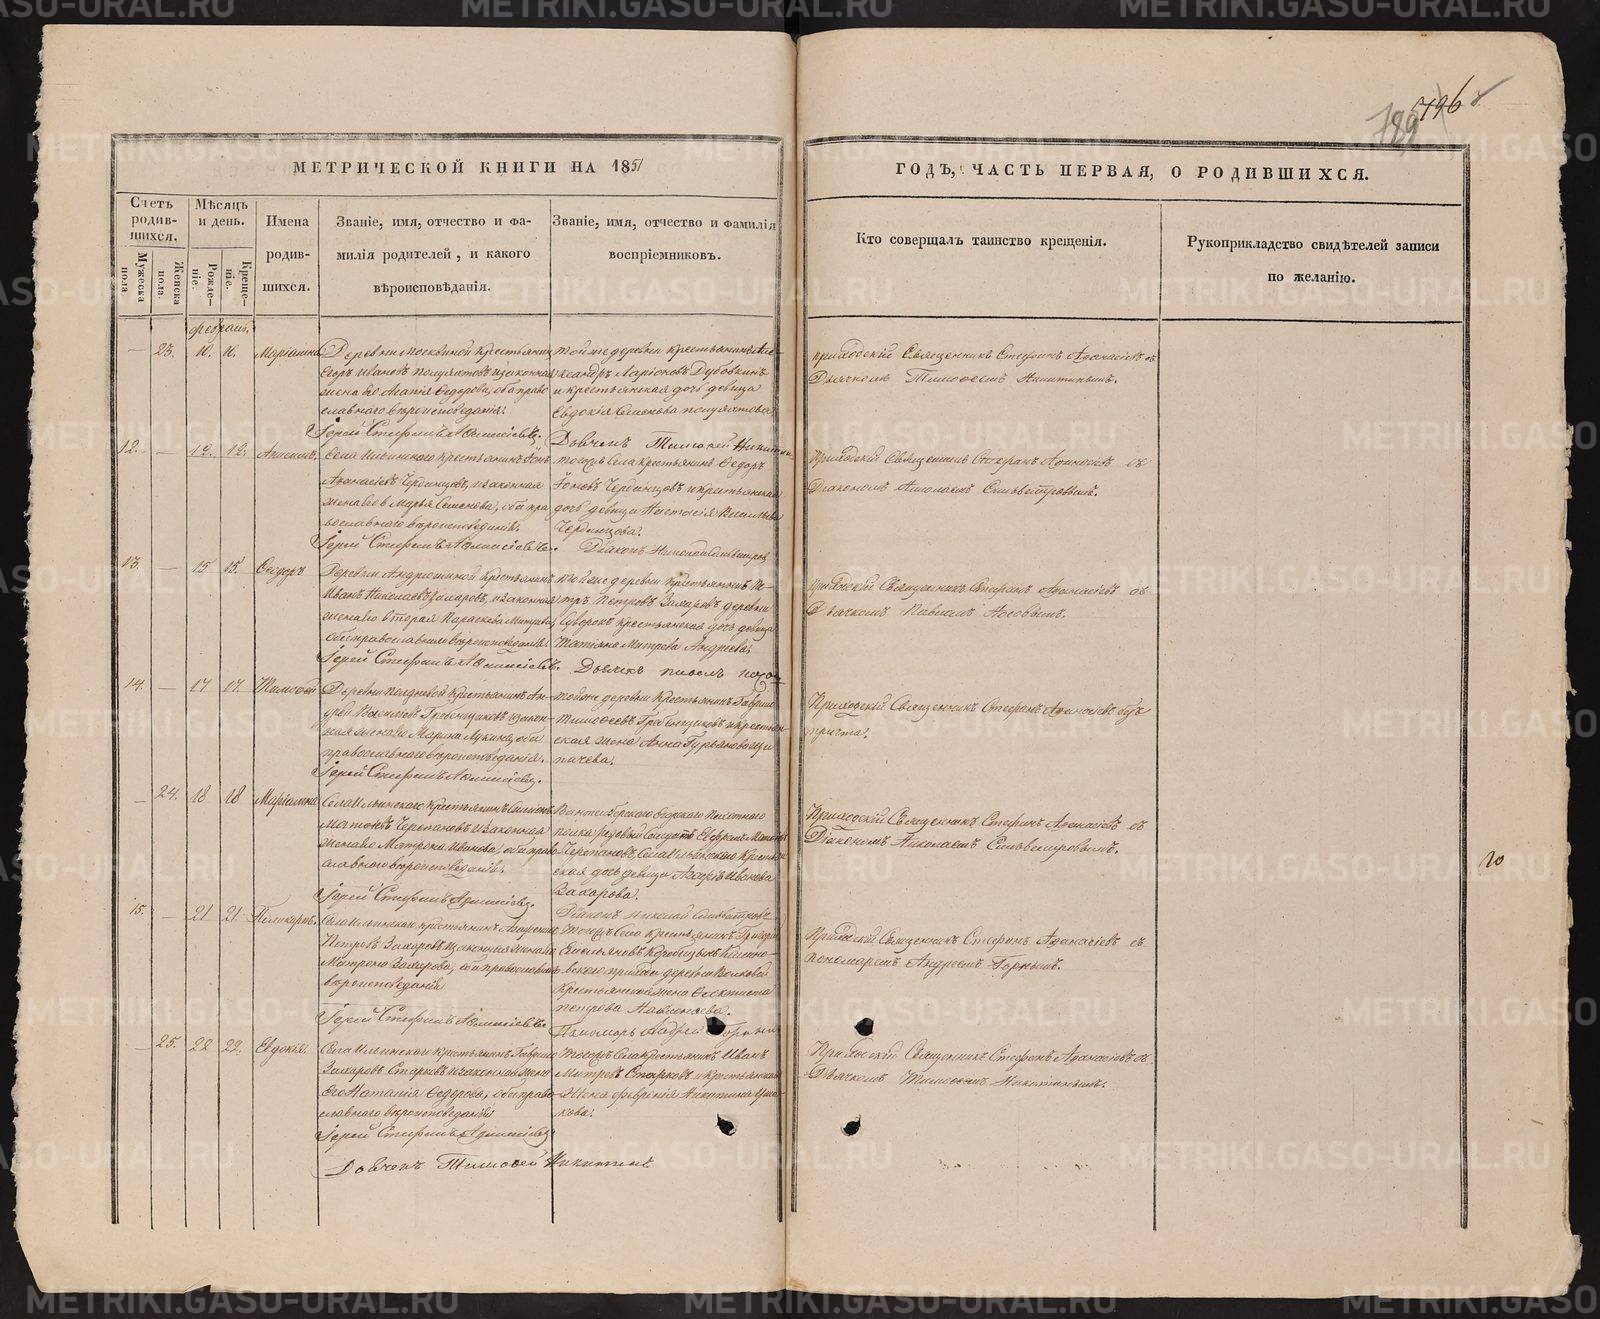 796
789
МЕТРИЧЕСКОЙ КНИГИ НА 1851
ГОДЪ, ЧАСТЬ ПЕРВАЯ, О РОДИВШИХСЯ.
Счетъ родив-
шихся.
Мужеска пола.
Женска пола.
Мѣсяцъ и день.
Рожде-
ніе.
Креще-
ніе.
Имена
родив-
шихся.
Званіе, имя, отчество и фа-
милія родителей, и какого
вѣроисповѣданія.
Званіе, имя, отчество и фамилія
воспріемниковъ.
Кто совершалъ таинство крещенія.
Рукоприкладство свидѣтелей записи
по желанію.
февраль.
— 23. 11. 11. Маріанна
Деревни Москвиной крестьянинъ
Егоръ Ивановъ Полуяхтовъ и законная
жена его Агапія Федорова, оба право-
славнаго вѣроисповѣданія.
Іерей Стефанъ Афанасіевъ.
тойже деревни крестьянинъ Але-
ксандръ Ларіоновъ Дубовкинъ
и крестьянская дочь девица
Евдокія Семенова Полуяхтова
Дьячекъ Тимофей Никитинъ
приходскій Священникъ Стефанъ Афанасіевъ съ
Дьячкомъ Тимофеемъ Никитинымъ.
12. — 12. 12.
Села Ильинскаго крестьянинъ
Афанасіевъ Чердынцовъ, и законная
жена его Марья Семенова, оба пра-
вославнаго вѣроисповѣданія.
Іерей Стефанъ Афанасіевъ.
тогожъ Села крестьянинъ Федоръ
Чердынцовъ и крестьянская
дочь девица Настасія Васильева
Чердынцова.
Діаконъ Николай Сильвестровъ
Приходскій Священникъ Стефанъ Афанасіевъ съ
Діакономъ Николаемъ Сильвестровымъ.
13. — 15 15. Феодоръ
Деревни Андрюшиной крестьянинъ
Иванъ Николаевъ Захаровъ, и законная
жена его вторая Параскева Митрева,
оба православнаго вѣроисповѣданія.
Іерей Стефанъ Афанасіевъ.
тойже деревни крестьянинъ Пе-
тръ Петровъ Захаровъ деревни
крестьянская дочь девица
Татіана Митрева Андреева.
Дьячекъ Павелъ
приходскій Священникъ Стефанъ Афанасіевъ съ
Дьячкомъ Павломъ Носовымъ.
14. — 17 17. Тимофей
Деревни Полдневой крестьянинъ Ан-
дрей Васильевъ Гребенщиковъ и закон-
ная жена его Марина Лукина, оба
православнаго вѣроисповѣданія.
Іерей Стефанъ Афанасіевъ.
тойже деревни крестьянинъ Гаврило
Тимофеевъ Гребенщиковъ и крестьян-
ская жена Анна Гурьянова
Приходскій Священникъ Стефанъ Афанасіевъ безъ
причта.
— 24. 18 18 Маріамна
Села Ильинскаго крестьянинъ
Черепановъ и законная
жена его Матрона Иванова, оба право-
славнаго вѣроисповѣданія.
Іерей Стефанъ Афанасіевъ.
полка рядовой Солдатъ
Черепановъ, Села Ильинскаго крестьян-
ская дочь девица Иванова
Захарова.
Діаконъ Николай Сильвестровъ
Приходскій Священникъ Стефанъ Афанасіевъ съ
Діакономъ Николаемъ Сильвестровымъ.
20
15. — 21 21 Поликарпъ.
Села Ильинскаго крестьянинъ
Петровъ Захаровъ, и законная жена его
Матрона Захарова, оба православнаго
вѣроисповѣданія
Іерей Стефанъ Афанасіевъ.
Тогожъ Села крестьянинъ Григорій
прихода деревни Волковой
Крестьянская жена Феоктиста
Петрова
Пономарь Андрей Горныхъ
Приходскій Священникъ Стефанъ Афанасіевъ съ
пономаремъ Андреемъ Горнымъ.
25. 22 22. Евдокія.
Села Ильинскаго крестьянинъ Гаврило
Захаровъ Старковъ и законная жена
его Наталія Федорова, оба право-
славнаго вѣроисповѣданія
Іерей Стефанъ Афанасіевъ
Дьячекъ Тимофей Никитинъ
Тогожъ Села крестьянинъ Иванъ
Митревъ Старковъ и крестьянская
жена Февронія Никитина
Приходскій Священникъ Стефанъ Афанасіевъ съ
Дьячкомъ Тимофеемъ Никитинымъ.
METRIKI.GASO-URAL.RU